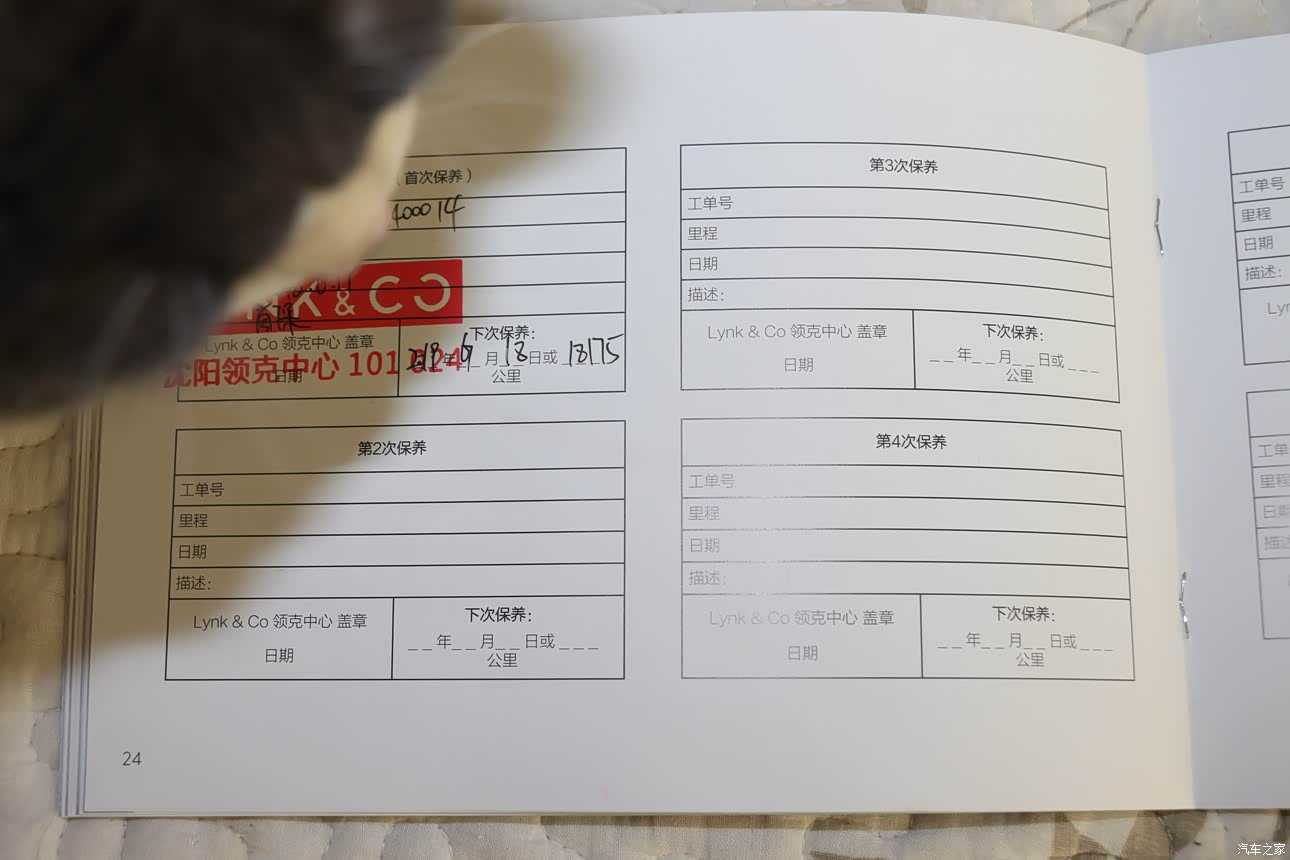 （首次保养）
400014
首保
K & CO
Lynk & Co 领克中心 盖章
日期
沈阳领克中心 101 824
下次保养：
2019年6月18日或18175
公里
第2次保养
工单号
里程
日期
描述：
Lynk & Co 领克中心 盖章
日期
下次保养：
_ _ 年_ _ 月_ _ 日或 _ _ _
公里
第3次保养
工单号
里程
日期
描述：
Lynk & Co 领克中心 盖章
日期
下次保养：
_ _ 年_ _ 月_ _ 日或 _ _ _
公里
第4次保养
工单号
里程
日期
描述：
Lynk & Co 领克中心 盖章
日期
下次保养：
_ _ 年_ _ 月_ _ 日或 _ _ _
公里
工单号
里程
日期
描述：
Lyn
工单
里程
日期
描述
24
汽车之家